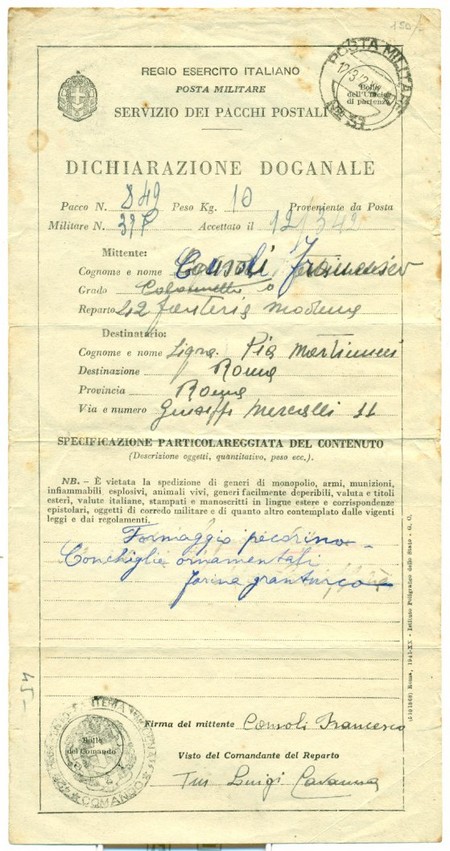 150/-
REGIO ESERCITO ITALIANO
POSTA MILITARE
SERVIZIO DEI PACCHI POSTALI
POSTA MILITARE
Bollo
dell'Ufficio
di partenza
N° 37
DICHIARAZIONE DOGANALE
Pacco N. 849 Peso Kg. 10 Proveniente da Posta
Militare N. 37P Accettato il 12/3 42
Mittente:
Cognome e nome Consoli Francesco
Grado
Reparto 42 fanteria Modena
Destinatario:
Cognome e nome Sigra. Pia Martinucci
Destinazione Roma
Provincia Roma
Via e numero Giuseppe Mercalli 11
SPECIFICAZIONE PARTICOLAREGGIATA DEL CONTENUTO
(Descrizione oggetti, quantitativo, peso ecc.)
NB. - È vietata la spedizione di generi di monopolio, armi, munizioni,
infiammabili esplosivi, animali vivi, generi facilmente deperibili, valuta e titoli
esteri, valute italiane, stampati e manoscritti in lingue estere e corrispondenze
epistolari, oggetti di corredo militare e di quanto altro contemplato dalle vigenti
leggi e dai regolamenti.
Formaggio pecorino
Conchiglie ornamentali
farina granturco
Roma, 1942-XX - Istituto Poligrafico dello Stato - G. C.
45-
Bollo
del Comando
COMANDO
Firma del mittente Consoli Francesco
Visto del Comandante del Reparto
Luigi Cavanna